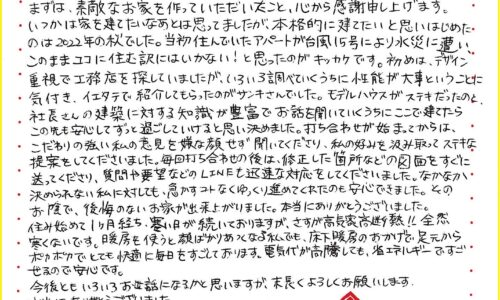 まずは、素敵なお家を作っていただいたこと、心から感謝申し上げます。
いつかは家を建てたいなあとは思ってましたが、本格的に建てたいと思いはじめた
のは2022年の秋でした。当初住んでいたアパートが台風15号により水災に遭い、
このままココに住む訳にはいかない！と思ったのがキッカケです。初めは、デザイン
重視で工務店を探していましたが、いろいろ調べていくうちに性能が大事ということに
気付き、イエタテで紹介してもらったのがサンキさんでした。モデルハウスがステキだったのと、
社長さんの建築に対する知識が豊富でお話を聞いていくうちにここで建てたら
この先も安心してずっと過ごしていけると思い決めました。打ち合わせが始まってからは、
こだわりの強い私の意見を嫌な顔せず聞いてくださり、私の好みを汲み取ってステキな
提案をしてくださいました。毎回打ち合わせの後は、修正した箇所などの図面をすぐに
送ってくださり、質問や要望などのLINEも迅速な対応をしてくださいました。なかなか
決められない私に対しても、急かすコトなくゆっくり進めてくれたのも安心できました。その
お陰で、後悔のないお家が出来上がりました。本当にありがとうございました。
住み始めて1ヶ月経ち、寒い日が続いておりますが、さすが高気密高断熱!!全然
寒くないです。暖房を使うと顔ばかりあつくなる私でも、床下暖房のおかげで足元から
ポカポカでとても快適に毎日をすごしております。電気代が高騰しても、省エネルギーですご
せるので安心です。
今後ともいろいろお世話になるかと思いますが、末長くよろしくお願いします。